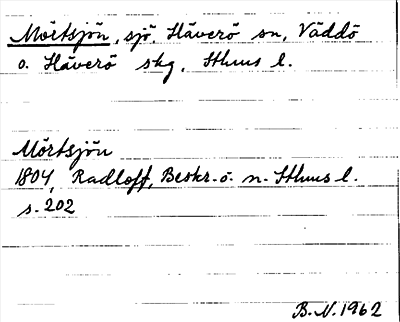 Mörtsjön, sjö, Häverö sn, Väddö
o. Häverö skg, Sthms l.
Mörtsjön
1804, Radloff, Beskr. ö. n. Sthms l.
s. 202
B.N. 1962